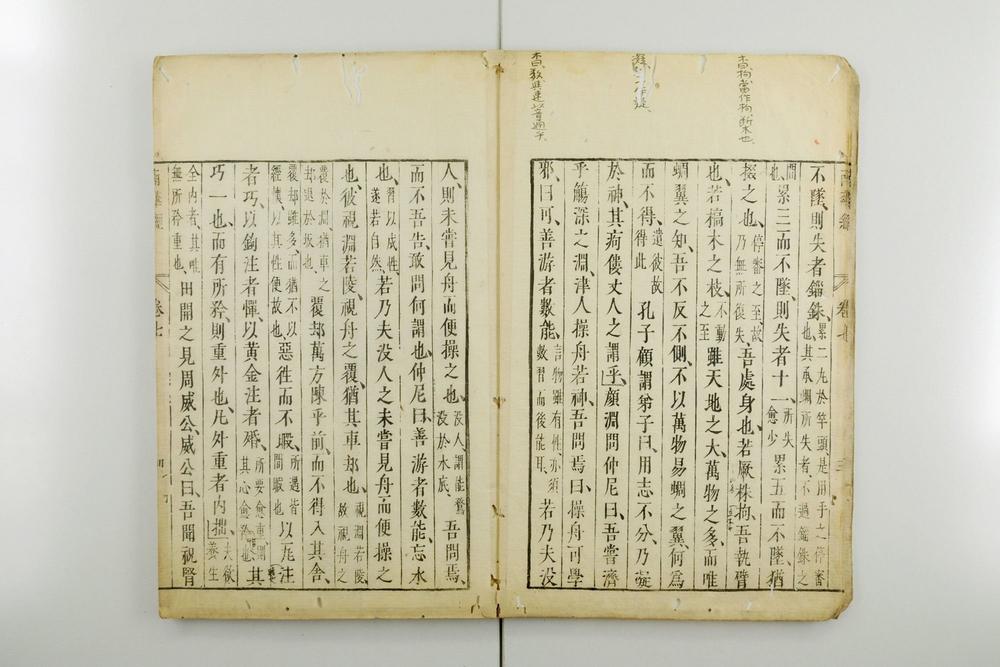 不墜、則失者錙銖、累二丸於竿頭、是用手之停審也、其承蜩所失者、不過錙銖之
間也、累三而不墜、則失者十一、所失愈少累五而不墜、猶
掇之也、停審之至、故乃無所復失吾處身也、若厥株拘、吾執臂
也、若槁木之枝、不動之至雖天地之大、萬物之多、而唯
蜩翼之知、吾不反不側、不以萬物易蜩之翼、何爲
而不得、遺彼故得此孔子顧謂弟子曰、用志不分、乃凝
於神、其痀僂丈人之謂乎、顏淵問仲尼曰、吾嘗濟
乎觴深之淵、津人操舟若神、吾問焉、曰、操舟可學
邪、曰可、善游者數能、言物雖有性、亦須數習而後能耳、若乃夫没
卷七
人、則未嘗見舟而便操之也、没人、謂能鶩没於水底、吾問焉、
而不吾告、敢問何謂也、仲尼曰、善游者數能、忘水
也、習以成性、遂若自然、若乃夫没人之未嘗見舟而便操之
也、彼視淵若陵、視舟之覆、猶其車却也、視淵若陵、故視舟之
覆於淵、猶車之却退於坂也、覆却萬方陳乎前、而不得入其舍、
覆却雖多、而猶不以經懷、以其性便故也惡往而不暇、所遇皆閒暇也以瓦注
者巧、以鉤注者憚、以黃金注者殙、所要愈重、則其心愈矜也、其
巧一也、而有所矜、則重外也、凡外重者内拙、夫欲養生
全内者、其唯無所矜重也、田開之見周威公、威公曰、吾聞祝腎
卷七
拘當作枸斫木也